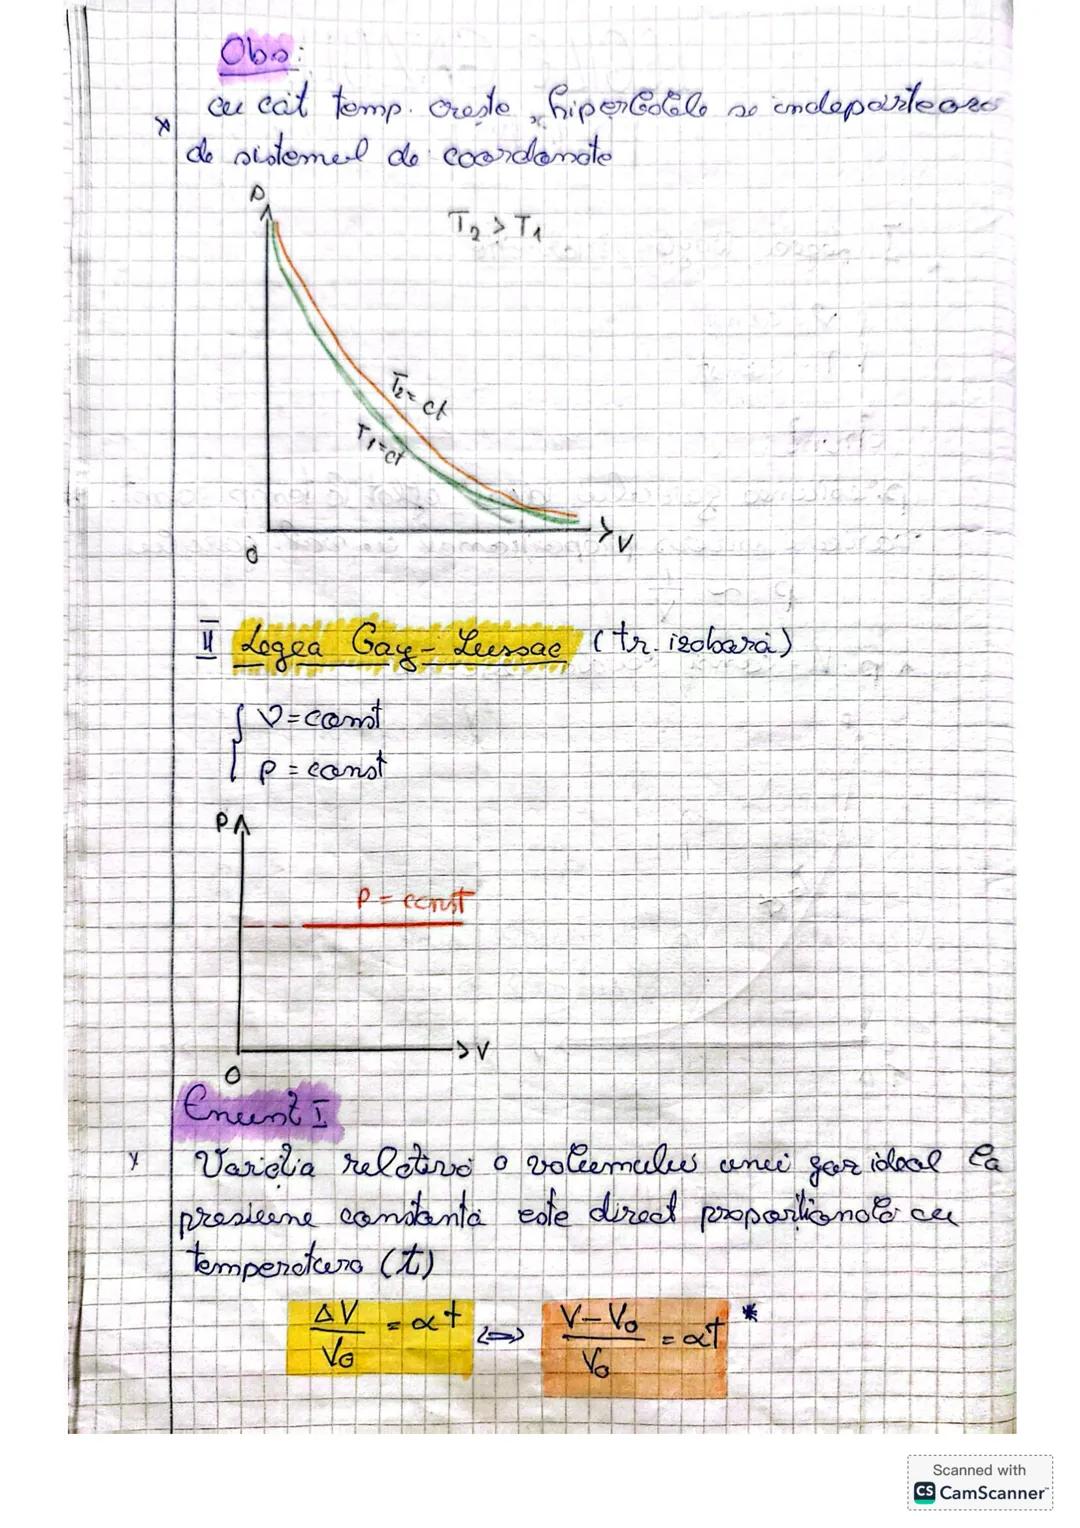 Obs:
* cu cât temp. crește, hiperbolele se îndepărtează
de sistemul de coordonate
P
T₂ > T₁
T₂ = ct
T₁ = ct
V
0
II Legea Gay-Lussac (tr. izobară)
ν = const
p = const
P
P = const
V
0
Enunț I
* Variația relativă a volumului unui gaz ideal la
presiune constantă este direct proporțională cu
temperatura (t)
ΔV/V₀ = αt ⟺ (V-V₀)/V₀ = αt *
Scanned with
CS CamScanner